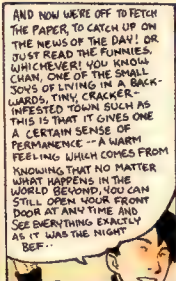 AND NOW WE'RE OFF TO FETCH
THE PAPER, TO CATCH UP ON
THE NEWS OF THE DAY! OR
JUST READ THE FUNNIES,
WHICHEVER! YOU KNOW
CHAN, ONE OF THE SMALL
JOYS OF LIVING IN A BACK-
WARDS, TINY, CRACKER-
INFESTED TOWN SUCH AS
THIS IS THAT IT GIVES ONE
A CERTAIN SENSE OF
PERMANENCE -- A WARM
FEELING WHICH COMES FROM
KNOWING THAT NO MATTER
WHAT HAPPENS IN THE
WORLD BEYOND, YOU CAN
STILL OPEN YOUR FRONT
DOOR AT ANY TIME AND
SEE EVERYTHING EXACTLY
AS IT WAS THE NIGHT
BEF--